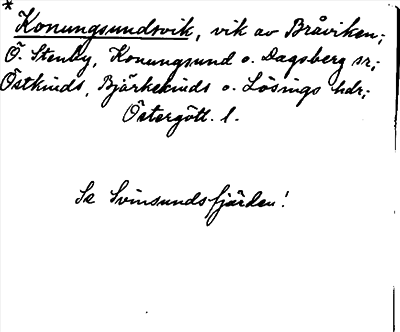 * Konungsundsvik, vik av Bråviken;
Ö. Stenby, Konungsund o. Dagsberg sr;
Östkinds, Björkekinds o. Lösings hdr;
Östergötl. l.
Se Svinsundsfjärden!